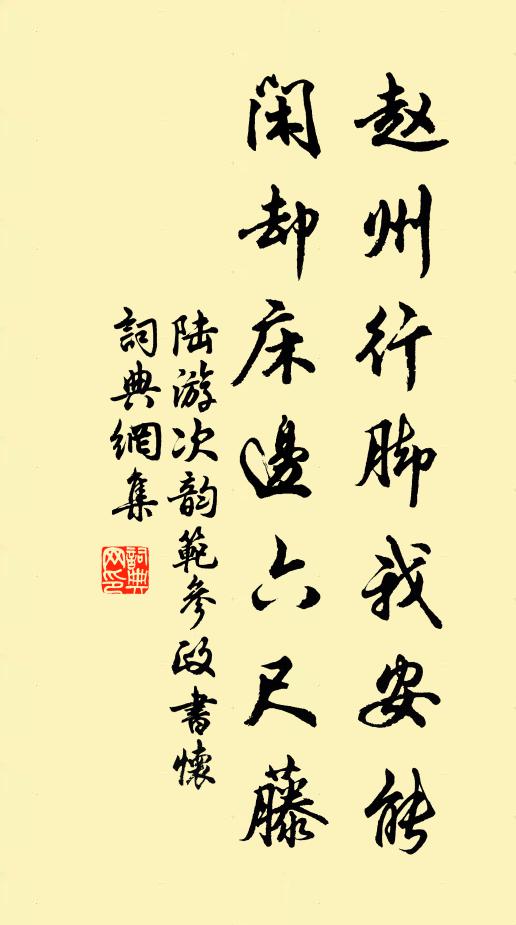 赵州行脚我安能
闲却床邊六尺藤
陆游次韵範參政書懷
詞典網集
詞典网印